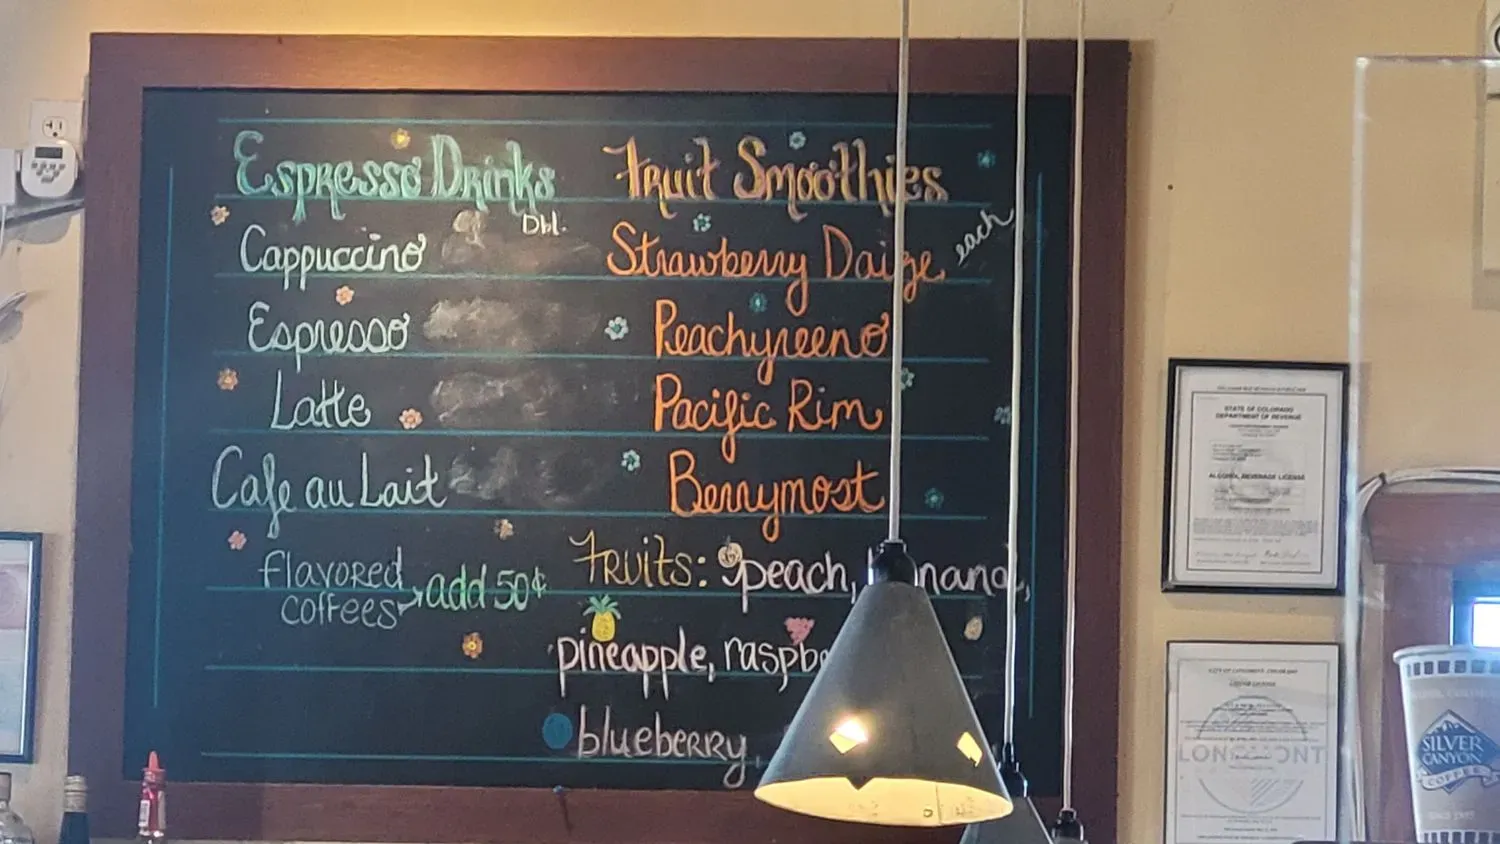 Espresso Drinks
Dbl.
Cappuccino
Espresso
Latte
Cafe au Lait
flavored
coffees → add 50¢
Fruit Smoothies
each
Strawberry Daize
Peachyreeno
Pacific Rim
Berrymost
Fruits: peach,
pineapple,
blueberry,
STATE OF COLORADO
DEPARTMENT OF REVENUE
ALCOHOL BEVERAGE LICENSE
LONGMONT
SILVER
CANYON
COFFEE